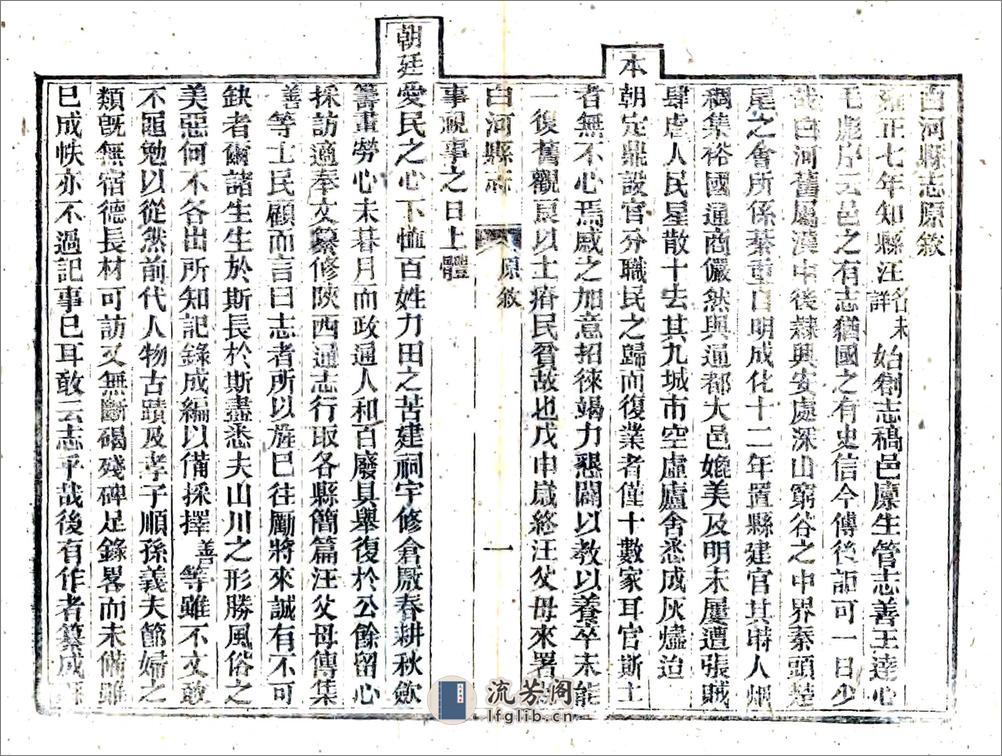 白河縣志原敘
雍正七年知縣汪名未詳始創志稿邑廩生管志善王達心
毛彪序云邑之有志猶國之有史信今傳後詎可一日少
哉白河舊屬漢中後隸興安處深山窮谷之中界秦頭楚
尾之會所係綦重自明成化十二年置縣建官其時人烟
稠集裕國通商儼然與通都大邑媲美及明末屢遭張賊
肆虐人民星散十去其九城市空虛廬舍悉成灰燼迨
本
朝定鼎設官分職民之歸而復業者僅十數家耳官斯土
者無不心焉感之加意招徠竭力懇闢以教以養卒未能
一復舊觀良以土瘠民貧故也戊申歲終汪父母來署
白河縣志 原敘 一
事視事之日上體
朝廷
愛民之心下恤百姓力田之苦建祠宇修倉廒春耕秋斂
籌畫勞心未碁月而政通人和百廢具舉復於公餘留心
採訪適奉文纂修陝西通志行取各縣簡篇汪父母傳集
善等士民顧而言曰志者所以旌已往勵將來誠有不可
缺者爾諸生生於斯長於斯盡悉夫山川之形勝風俗之
美惡何不各出所知記錄成編以備採擇善等雖不文敢
不黽勉以從然前代人物古蹟及孝子順孫義夫節婦之
類旣無宿德長材可訪又無斷碣殘碑足錄畧而未備雖
已成帙亦不過記事已耳敢云志乎哉後有作者纂成
流芳阁
lfglib.cn